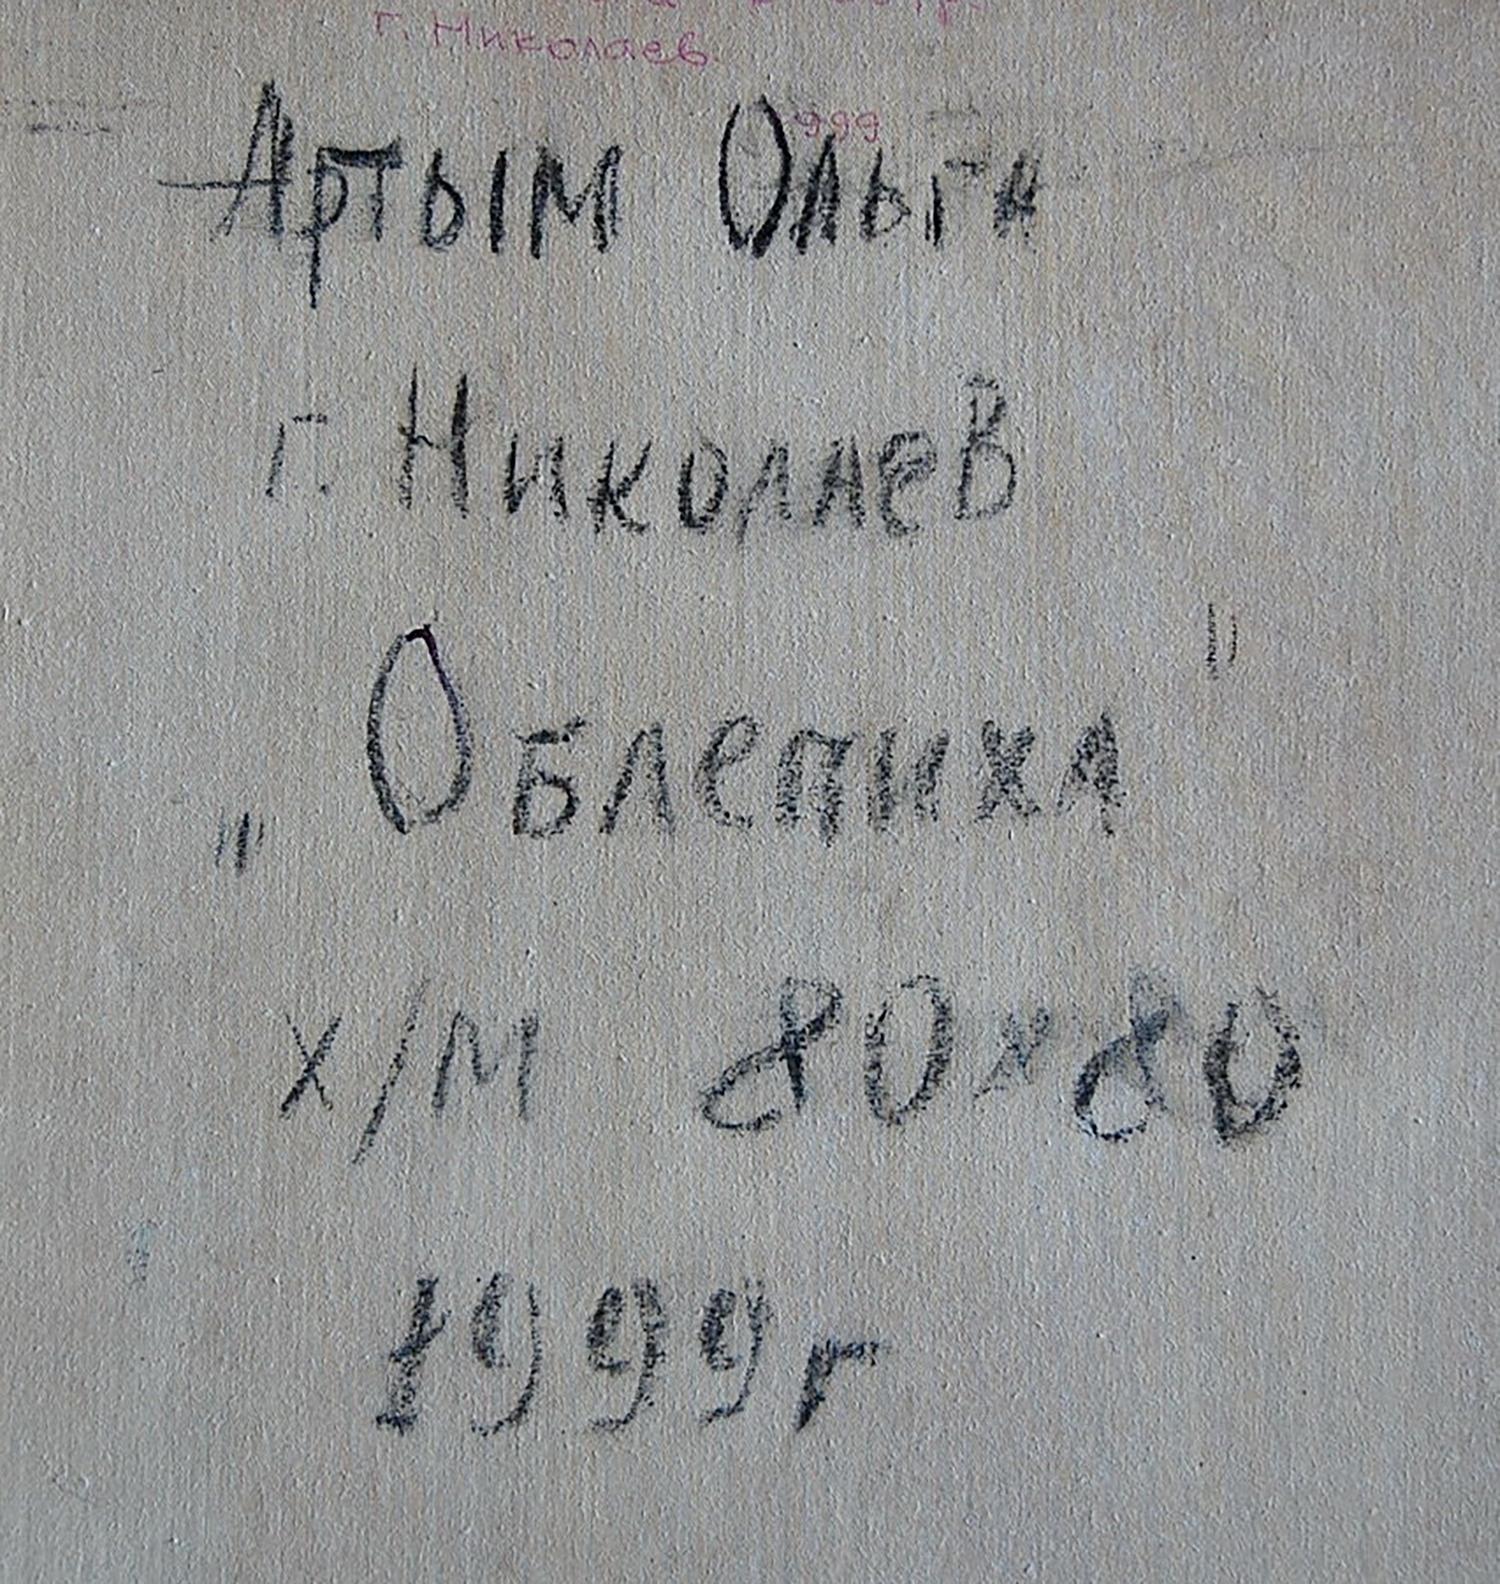 г. Николаев
999
Артым Ольга
г. Николаев
„Облепиха"
х/м 80х80
1999 г